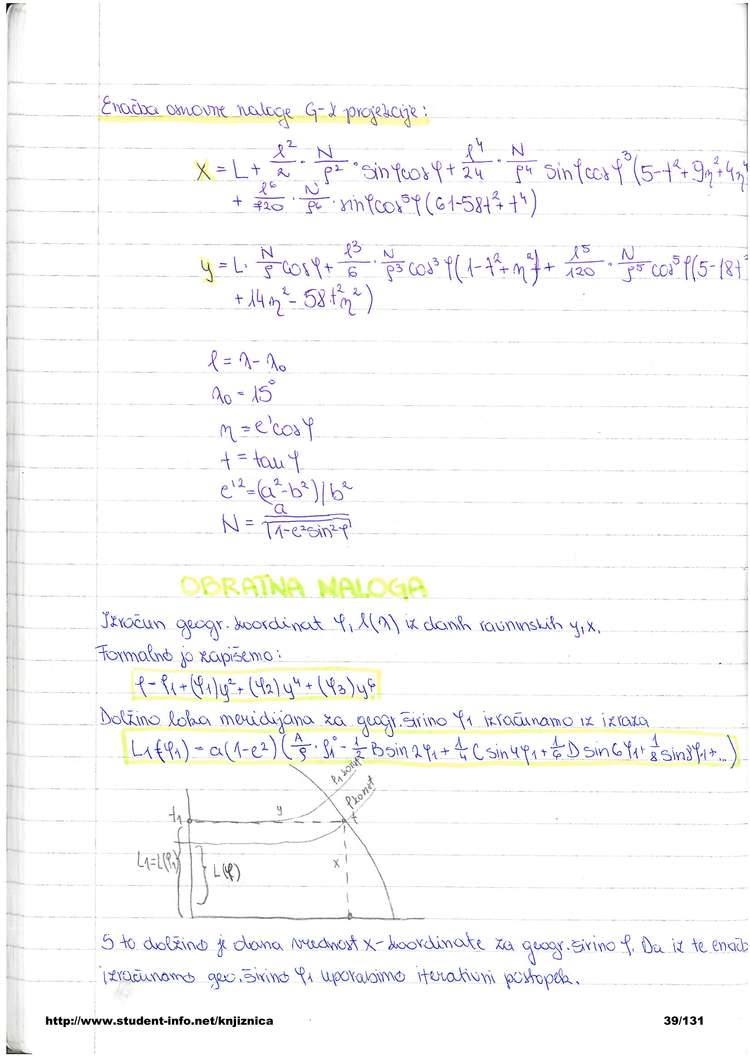 Enačba osnovne naloge G-K projekcije:
x = L + l²/2 · N/ρ² · sinφcosφ + l⁴/24 · N/ρ⁴ sinφcosφ³(5-t²+9η²+4η⁴
+ l⁶/720 · N/ρ⁶ · sinφcos⁵φ(61-58t²+t⁴)
y = L · N/ρ cosφ + l³/6 · N/ρ³ cos³φ(1-t²+η²) + l⁵/120 · N/ρ⁵ cos⁵φ(5-18t²
+ 14η² - 58t²η²)
l = λ - λ₀
λ₀ = 15°
η = e'cosφ
t = tanφ
e'² = (a²-b²)/b²
N = a/√1-e²sin²φ
OBRATNA NALOGA
Izračun geogr. koordinat φ, l(λ) iz danih ravninskih y, x.
Formalno jo zapišemo:
φ = φ₁ + (φ₁)y² + (φ₂)y⁴ + (φ₃)y⁶
Dolžino loka meridijana za geogr. širino φ₁ izračunamo iz izraza
L₁(φ₁) = a(1-e²)(A/ρ · φ₁° - 1/2 B sin2φ₁ + 1/4 C sin4φ₁ + 1/6 D sin6φ₁ + 1/8 sin8φ₁ + ...)
y
x
L₁=L(φ₁)
L(φ)
S to dolžino je dana vrednost x-koordinate za geogr. širino φ. Da iz te enačb
izračunamo geo. širino φ₁ uporabimo iterativni postopek.
http://www.student-info.net/knjiznica
39/131